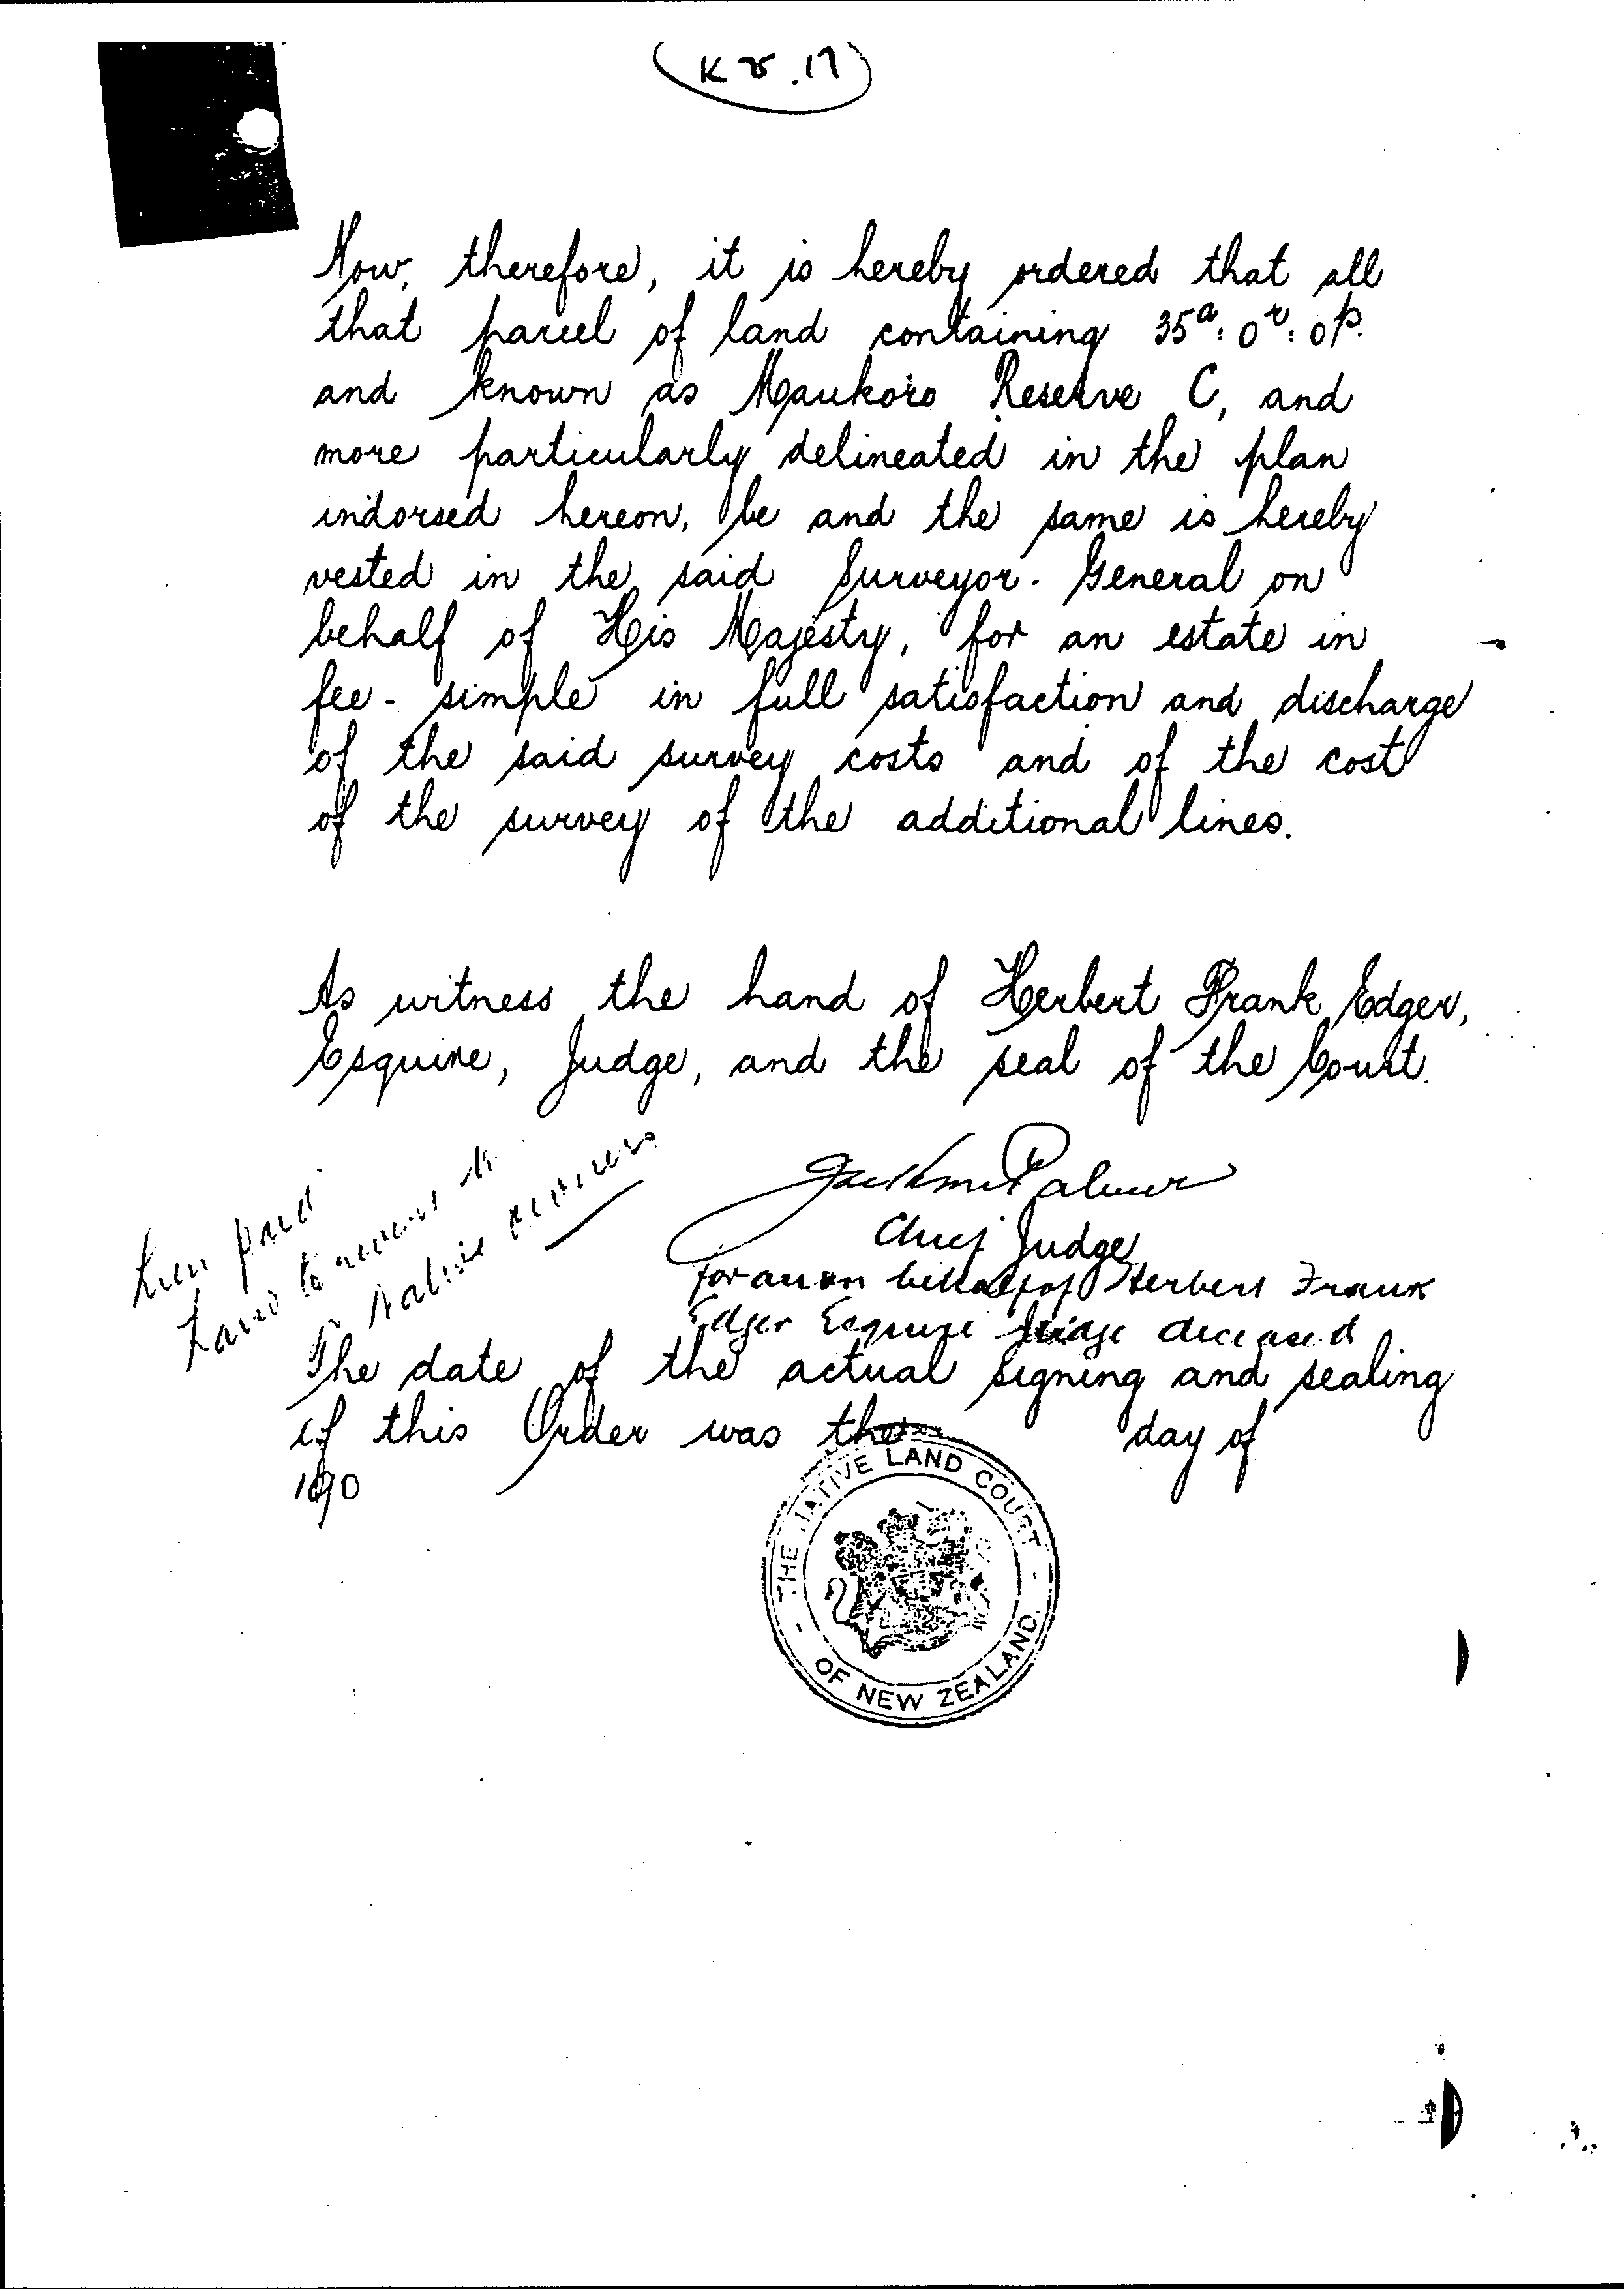 K 25.17
Now, therefore, it is hereby ordered that all
that parcel of land containing 35a: 0r: 0p.
and known as Maukoro Reserve C, and
more particularly delineated in the plan
indorsed hereon, be and the same is hereby
vested in the said Surveyor-General on
behalf of His Majesty, for an estate in
fee-simple in full satisfaction and discharge
of the said survey costs and of the cost
of the survey of the additional lines.
As witness the hand of Herbert Frank Edger,
Esquire, Judge, and the seal of the Court.
Palmer
Chief Judge
for and on behalf of Herbert Frank
Edger Esquire Judge deceased
Lien paid
Land to
Native
The date of the actual signing and sealing
of this Order was the day of
190
THE NATIVE LAND COURT
OF NEW ZEALAND.